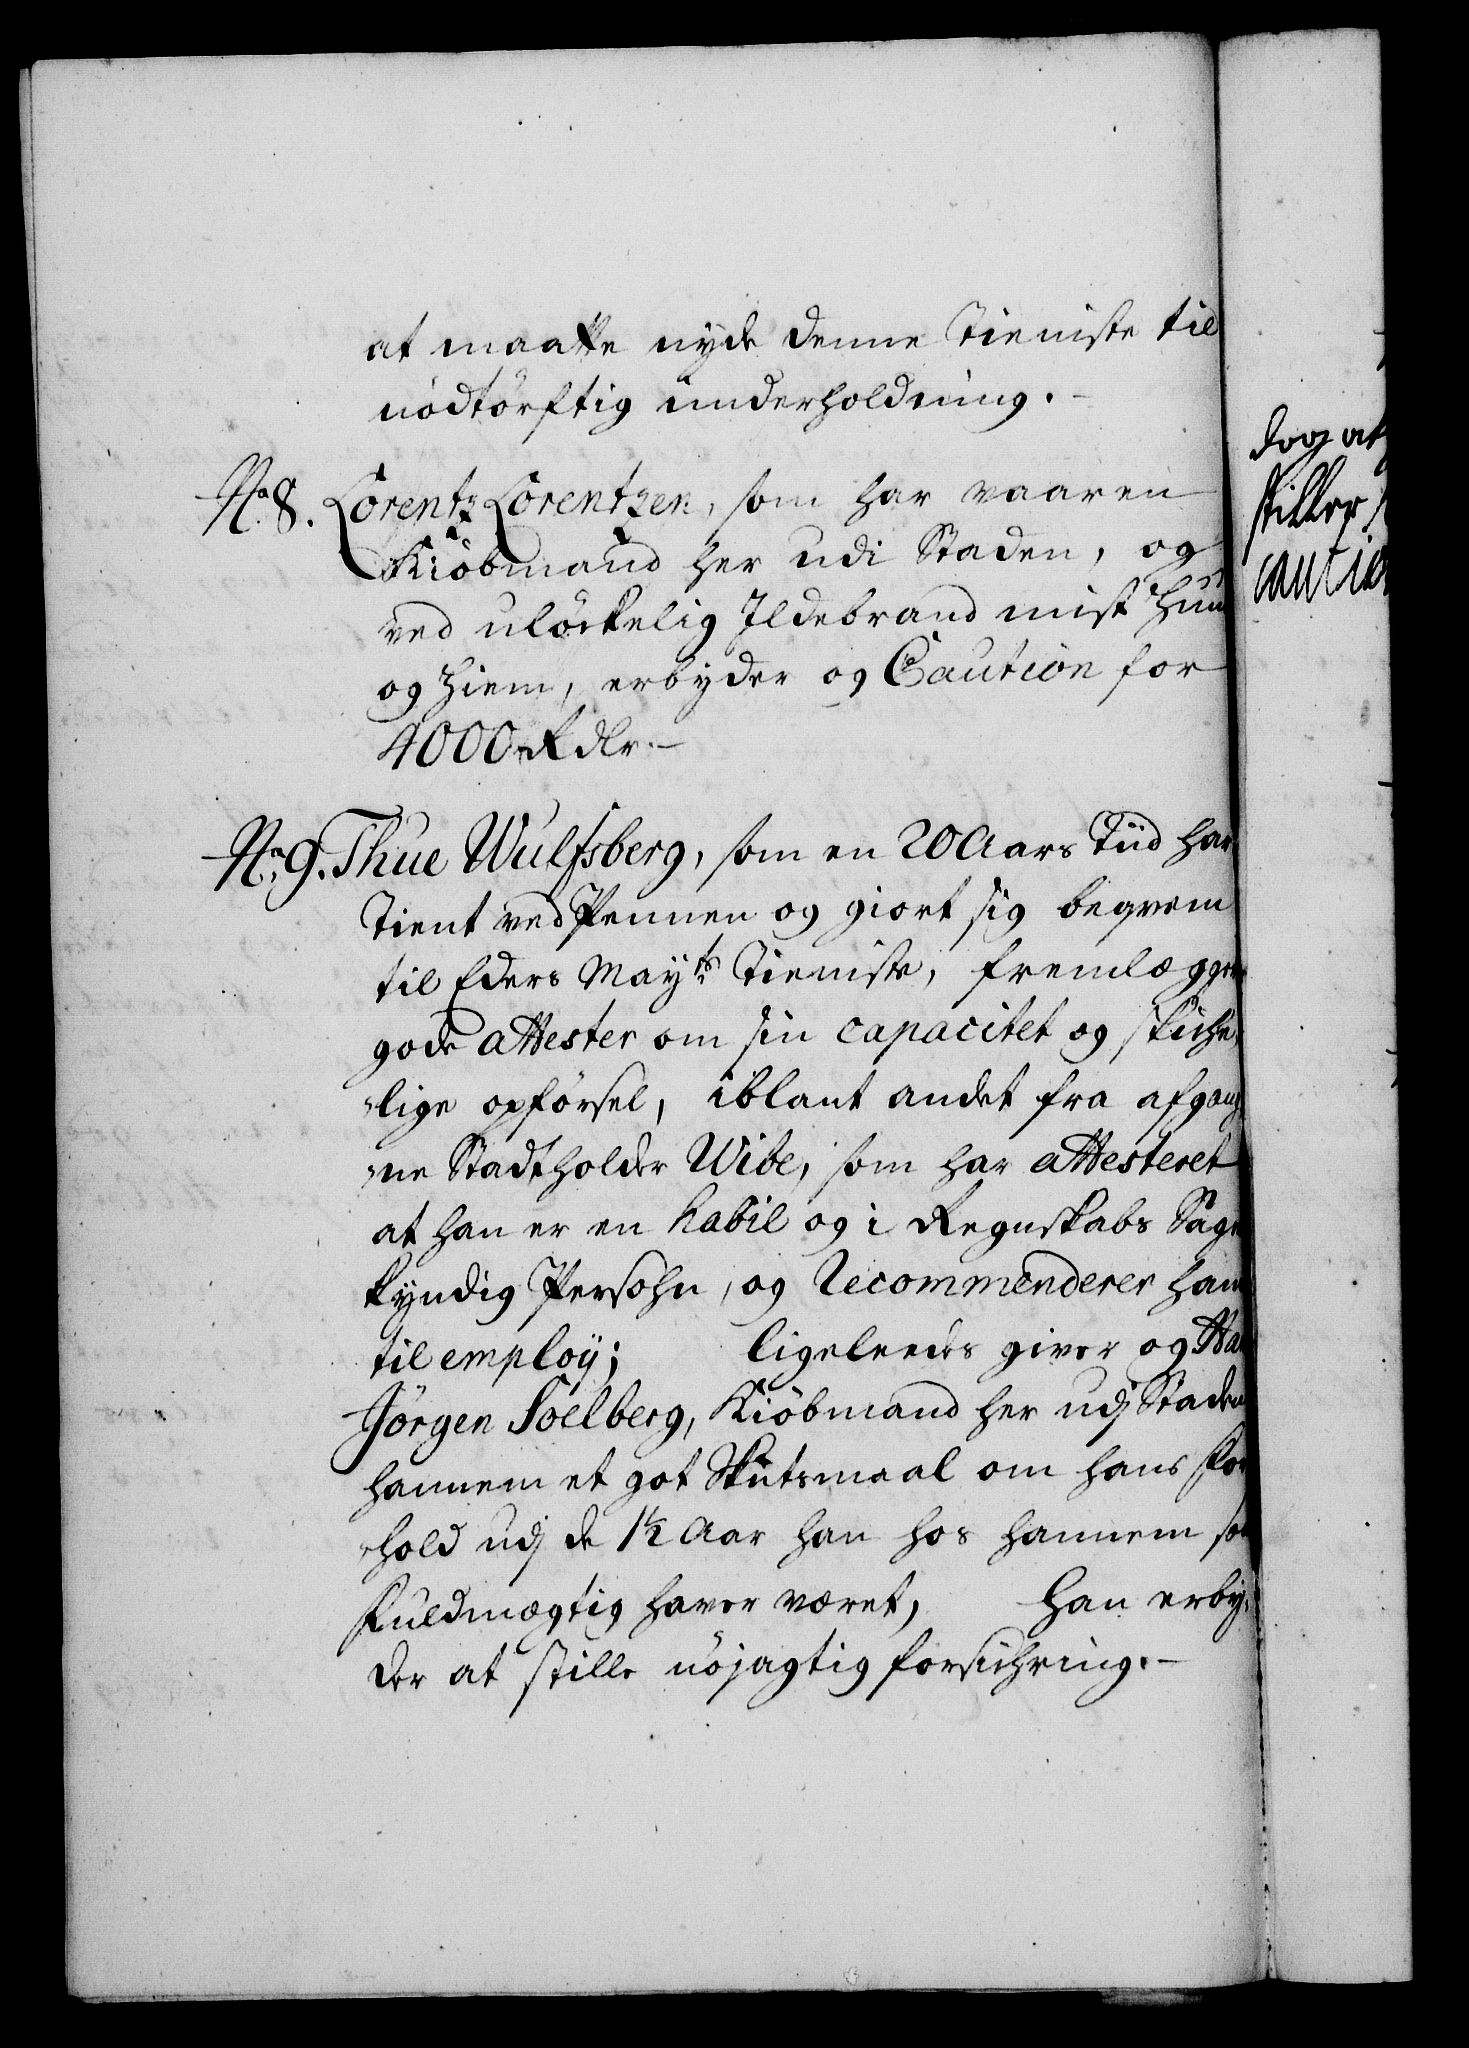 at maatte nyde denne Tieniste til
nödtörftig underholdning.
No. 8. Lorentz Lorentzen, som har vaaren
Kiöbmand her udi Staden, og
ved ulöckelig Ildebrand mist Huus
og Hiem, erbyder og Caution for
4000 Rdlr.
No. 9. Thue Wulfsberg, som en 20 Aars Tiid har
Tient ved Pennen og giort sig beqvem
til Eders Mayts Tieniste, fremlægger
gode attester om sin capacitet og skiche,
lige opförsel, iblant andet fra afgang
ne Stadtholder Wibe, som har attesteret
at han er en habil og i Regnskabs Sager
kyndig Persohn, og Recommenderer ham
til employ; ligeleedes giver og
Jörgen Soelberg, Kiöbmand her udj Staden
hannem et got Skutsmaal om hans For
hold udj de 1½ Aar han hos hannem som
Fuldmægtig haver været, Han erby,
der at stille nöjagtig forsichring.
dog at
stiller
caution